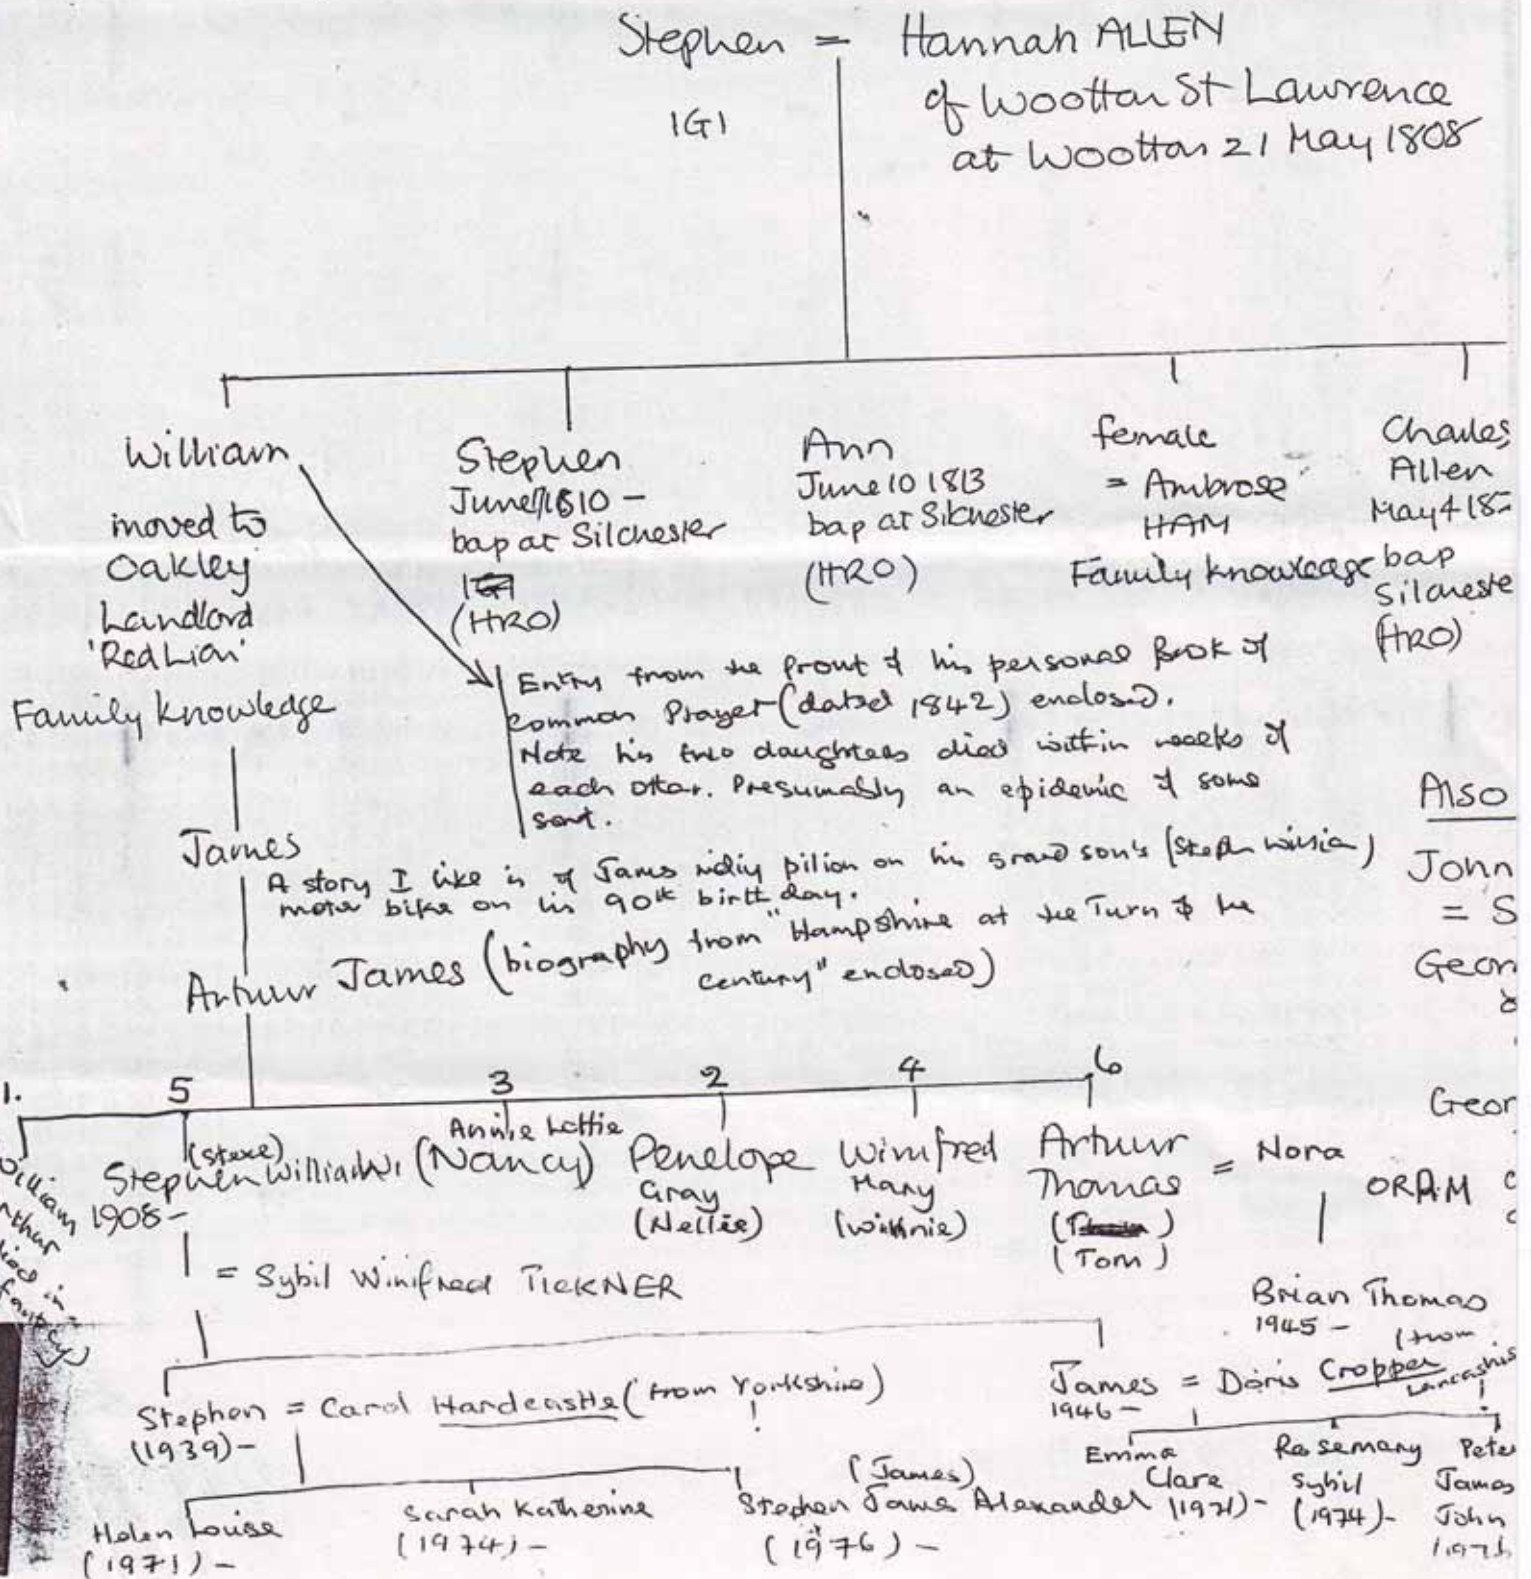 Stephen = Hannah ALLEN
of Wootton St Lawrence
IGI
at Wootton 21 May 1808
William
moved to
Oakley
Landlord
'Red Lion'
Family knowledge
Stephen
June 1810 -
bap at Silchester
(HRO)
Ann
June 10 1813
bap at Silchester
(HRO)
female
= Ambrose
HAM
Family knowledge
Charles
Allen
May 4 18
bap
Silcheste
(HRO)
Entry from the front of his personal Book of
Common Prayer (dated 1842) enclosed.
Note his two daughters died within weeks of
each other. Presumably an epidemic of some
sort.
Also
John
= S
Geor
Geor
James
A story I like is of James riding pilion on his grand son's (Stephen William)
motor bike on his 90th birthday.
Arthur James (biography from "Hampshire at the Turn of the
century" enclosed)
1. 5 3 2 4 6
William
rthur
died in
(Steve)
Stephen William
1908 -
Annie Lottie
(Nancy)
Penelope
Gray
(Nellie)
Winifred
Mary
(Winnie)
Arthur
Thomas
(Tom)
= Nora
ORAM
= Sybil Winifred TICKNER
Brian Thomas
1945 -
Stephen = Carol Hardcastle (from Yorkshire)
!
(1939) -
James = Doris Cropper (from
Lancashis
!
1946 -
Helen Louise
(1971) -
Sarah Katherine
(1974) -
(James)
Stephen James Alexander
(1976) -
Emma
Clare
(1971) -
Rosemary
Sybil
(1974) -
Peter
James
John